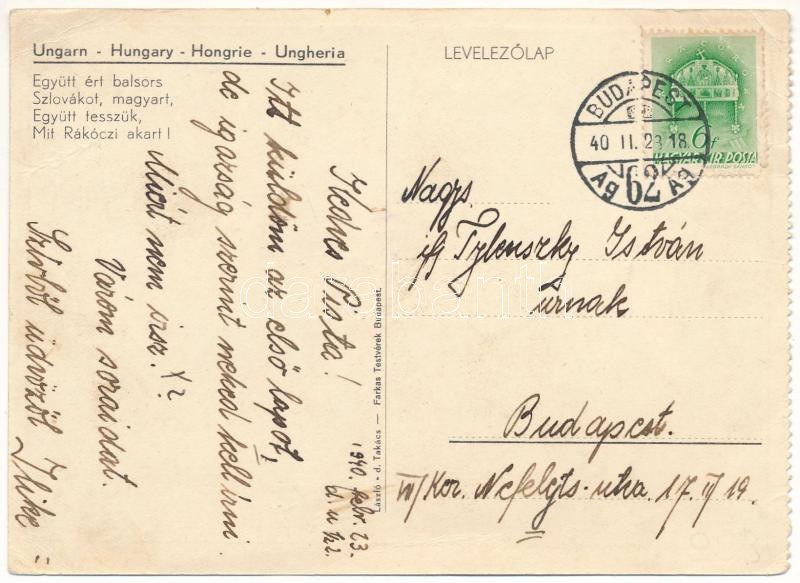 Ungarn - Hungary - Hongrie - Ungheria
Együtt ért balsors
Szlovákot, magyart,
Együtt tesszük,
Mit Rákóczi akart!
LEVELEZŐLAP
BUDAPEST
40 II. 23 18
Ag 62 Ag
6f
MAGYAR KIR. POSTA
1940. febr. 23.
d. u.
Kedves Pista!
Itt küldöm az első lapot,
de igazság szerint neked kell írni.
Miért nem írsz. X?
Várom soraidat.
Szívből üdvözöl Ilike
László - d. Takács — Farkas Testvérek Budapest.
Nagys.
ifj Tylenszky István
úrnak
Budapest.
VII/Ker. Nefelejts-utca 17. II/19.
darabanth